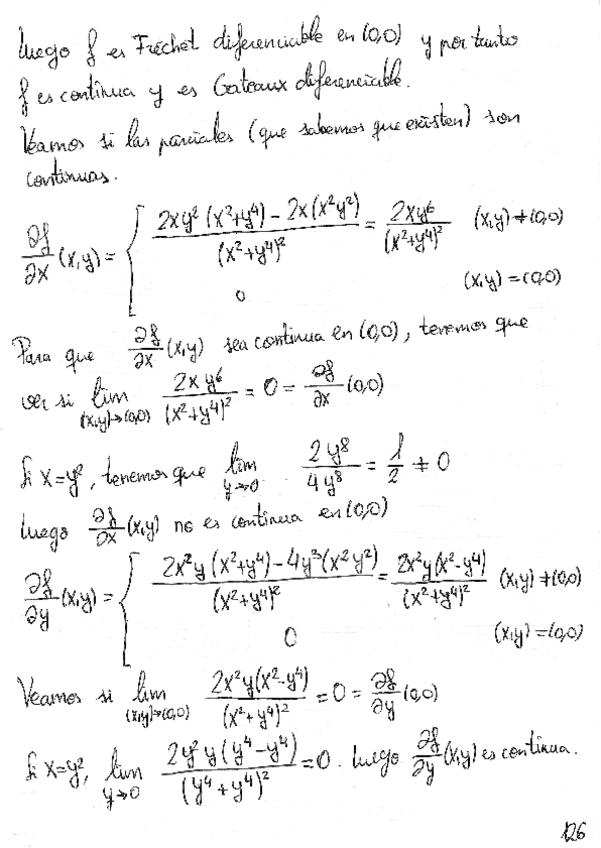 luego f es Fréchet diferenciable en (0,0) y por tanto
f es continua y es Gateaux diferenciable.
Veamos si las parciales (que sabemos que existen) son
continuas.
∂f/∂x (x,y) = { (2xy²(x²+y⁴) - 2x(x²y²))/(x²+y⁴)² = 2xy⁶/(x²+y⁴)² (x,y) ≠ (0,0)
0 (x,y) = (0,0)
Para que ∂f/∂x (x,y) sea continua en (0,0), tenemos que
ver si lim (x,y)→(0,0) 2xy⁶/(x²+y⁴)² = 0 = ∂f/∂x (0,0)
Si x=y², tenemos que lim y→0 2y⁸/4y⁸ = 1/2 ≠ 0
luego ∂f/∂x (x,y) no es continua en (0,0)
∂f/∂y (x,y) = { (2x²y(x²+y⁴) - 4y³(x²y²))/(x²+y⁴)² = 2x²y(x²-y⁴)/(x²+y⁴)² (x,y) ≠ (0,0)
0 (x,y) = (0,0)
Veamos si lim (x,y)→(0,0) 2x²y(x²-y⁴)/(x²+y⁴)² = 0 = ∂f/∂y (0,0)
Si x=y², lim y→0 2y²y(y⁴-y⁴)/(y⁴+y⁴)² = 0. luego ∂f/∂y (x,y) es continua.
126